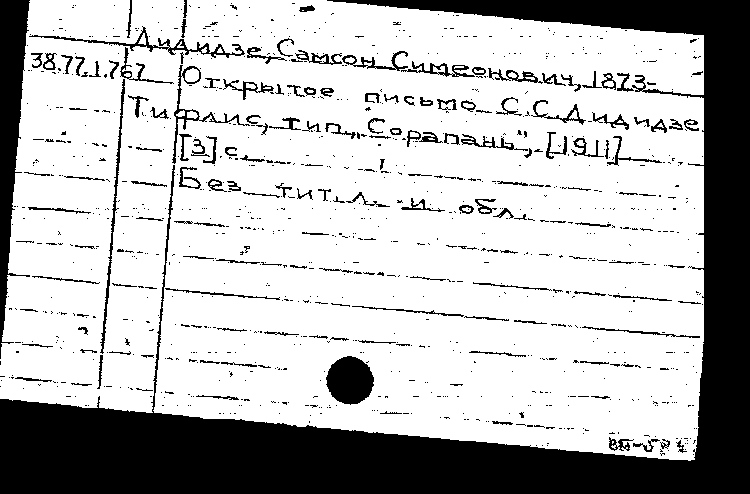 Дидидзе, Самсон Симеонович, 1873-
38.77.1.767 Открытое письмо С.С.Дидидзе.
Тифлис, тип. „Сорапань", [1911]
[3] с.
Без тит. л. и обл.